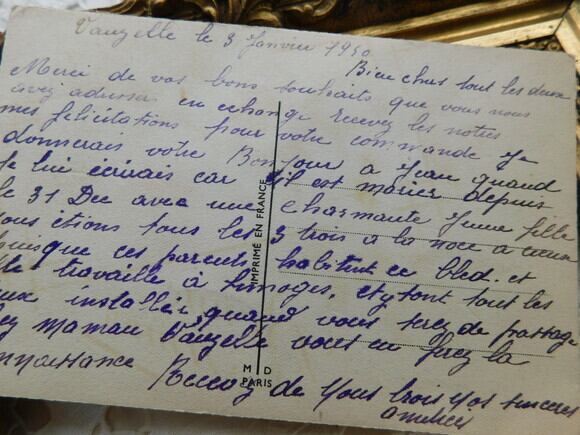 Vauzelle le 3 Janvier 1950
Bien chers tous les deux
Merci de vos bons souhaits que vous nous
avez adresser en echange recevez les notres
mes félicitations pour votre commande Je
donnerais votre Bonjour a Jean quand
Je lui écrirais car il est marier depuis
le 31 Dec avec une charmante Jeune fille
nous étions tous les 3 trois a la noce a
puisque ces parents habitent ce bled. et
travaille à Limoges, et y tont tout les
deux installée, quand vous serez de passage
chez Maman Vauzelle vous en ferez la
connaissance Recevez de Nous trois Nos sinceres
amities
IMPRIMÉ EN FRANCE
M D
PARIS